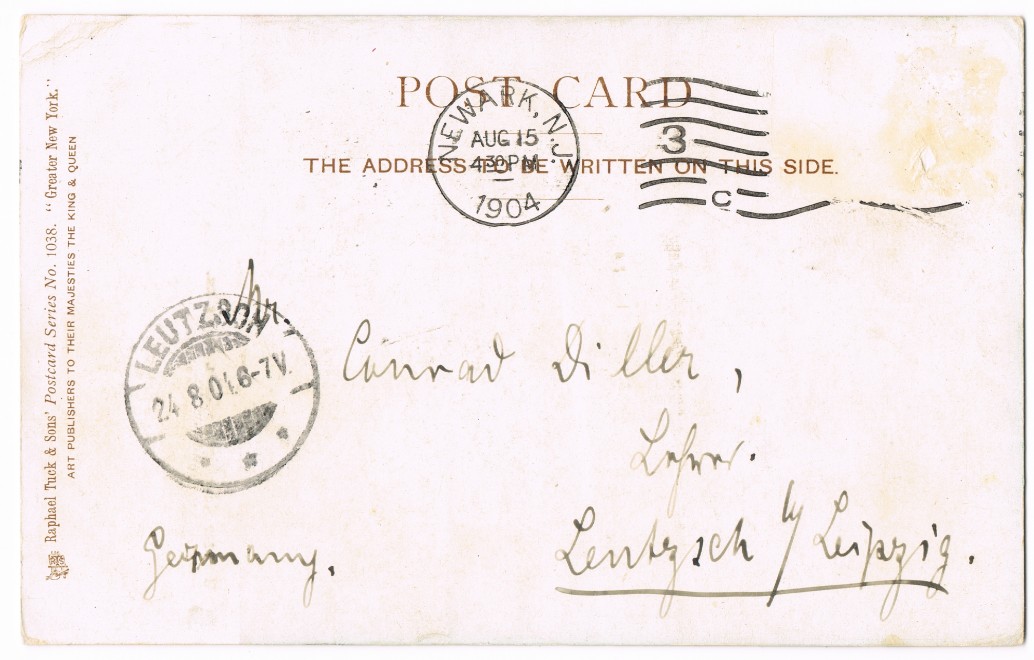 POST CARD
THE ADDRESS TO BE WRITTEN ON THIS SIDE.
NEWARK, N.J.
AUG 15
4 30 PM
1904
3
C
Raphael Tuck & Sons' Postcard Series No. 1038. "Greater New York."
ART PUBLISHERS TO THEIR MAJESTIES THE KING & QUEEN
LEUTZSCH
24 8 04 6-7V
Hr.
Conrad Diller,
Lehrer.
Leutzsch b/ Leipzig.
Germany.